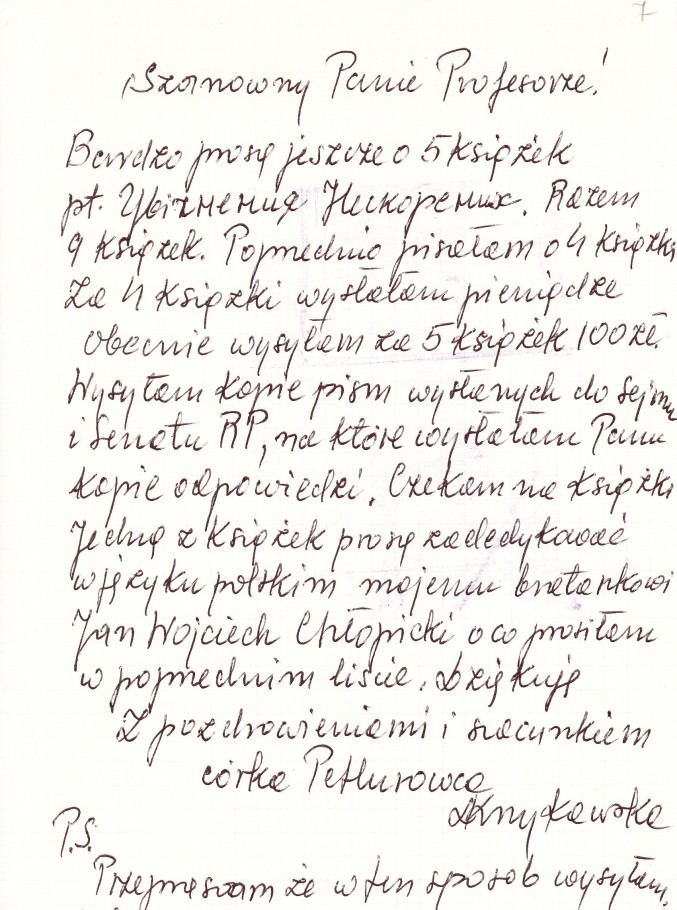 7
Szanowny Panie Profesorze!
Bardzo proszę jeszcze o 5 książek
pt. Ув'язнения Нескорених. Razem
9 książek. Poprzednio pisałam o 4 książki
Za 4 książki wysłałam pieniądze
obecnie wysyłam za 5 książek 100 zł.
Wysyłam kopie pism wysłanych do Sejmu
i Senatu RP, na które wysłałam Panu
kopie odpowiedzi. Czekam na książki
Jedną z książek proszę zadedykować
w języku polskim mojemu bratankowi
Jan Wojciech Chłopicki o co prosiłam
w poprzednim liście. Dziękuję
Z pozdrowieniami i szacunkiem
córka Petlurowca
P.S.
Przepraszam że w ten sposób wysyłam.